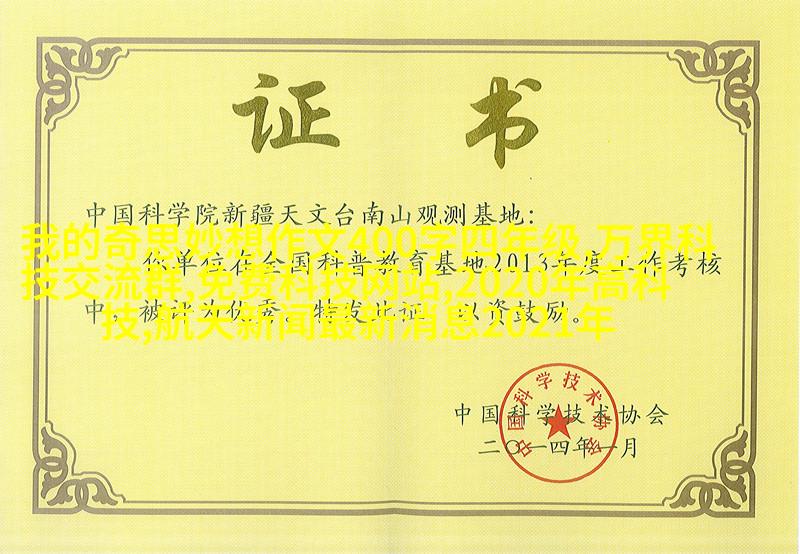 证书
中国科学院新疆天文台南山观测基地:
我的奇思妙想作文400字四年级,万界科
你单位在全国科普教育基地2013年度工作考核
技交流群,免费科技网站,2020年高科
中，被评为优秀。特发此证，以资鼓励。
技,航天新闻最新消息2021年
中国科学技术协会
中国科学技术协会
二〇一四年一月